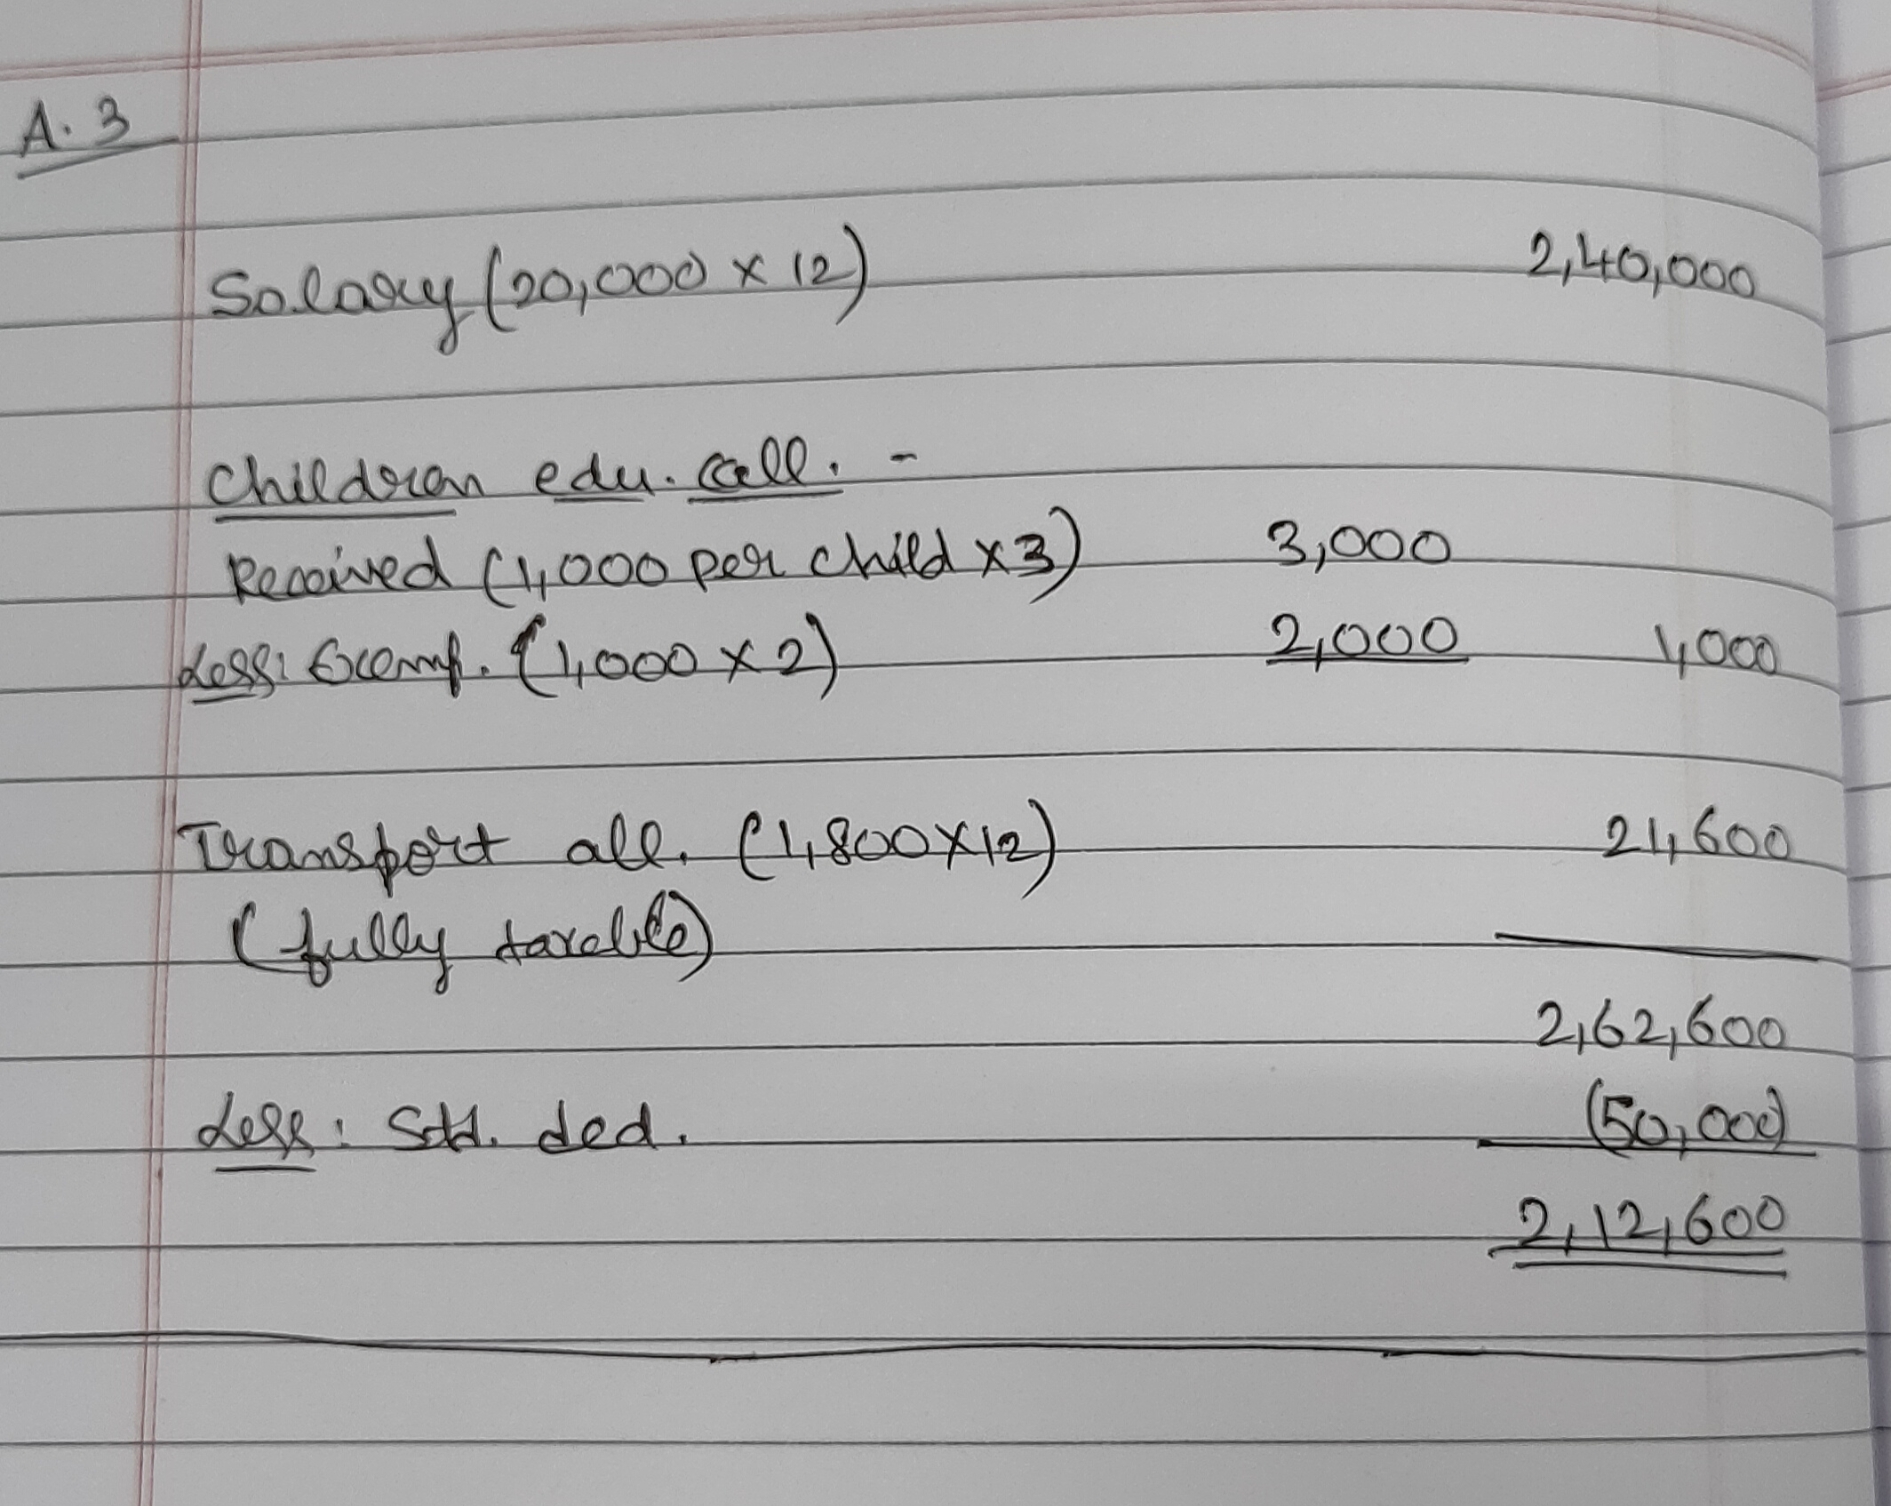 A.3
Salary (20,000 x 12) 2,40,000
Children edu. all. -
Received (1,000 per child x3) 3,000
Less: Exemp. (1,000 x 2) 2,000 1,000
Transport all. (1,800x12) 21,600
(fully taxable)
2,62,600
Less: Std. ded. (50,000)
2,12,600